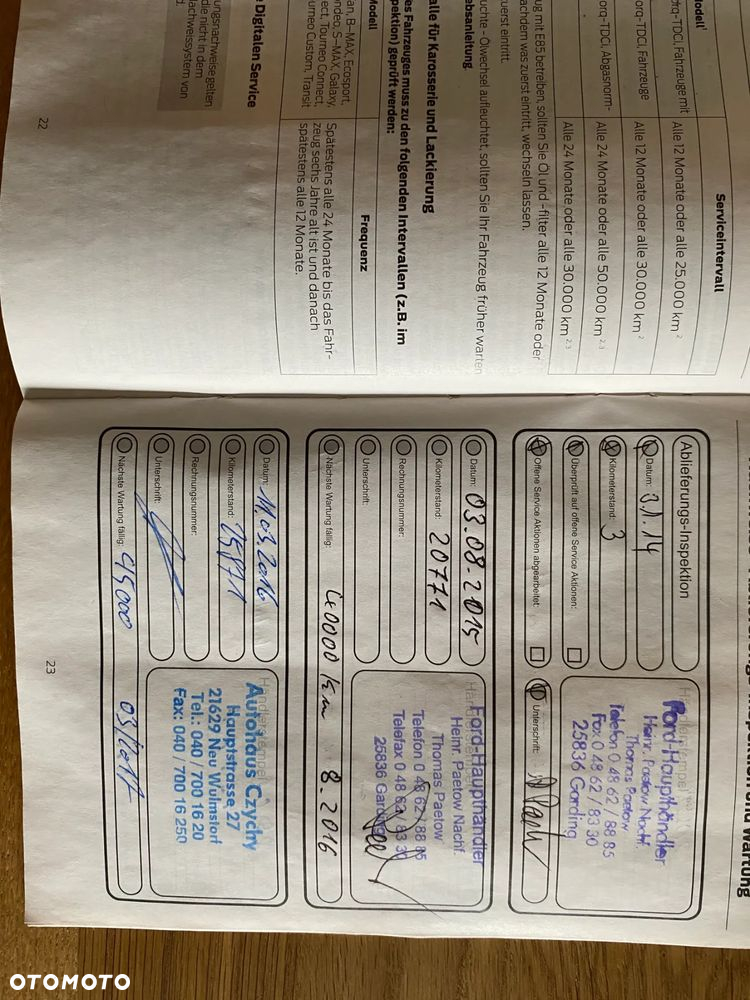 odell¹
Serviceintervall
orq-TDCi, Fahrzeuge mit
Alle 12 Monate oder alle 25.000 km ²
orq-TDCi, Fahrzeuge
Alle 12 Monate oder alle 30.000 km ²
orq-TDCi, Abgasnorm-
Alle 24 Monate oder alle 50.000 km ²·³
Alle 24 Monate oder alle 30.000 km ²·³
ug mit E85 betreiben, sollten Sie Öl und -filter alle 12 Monate oder
achdem was zuerst eintritt, wechseln lassen.
uchte - Ölwechsel aufleuchtet, sollten Sie Ihr Fahrzeug früher warten
ebsanleitung.
uerst eintritt.
alle für Karosserie und Lackierung
es Fahrzeuges muss zu den folgenden Intervallen (z.B. im
pektion) geprüft werden:
odell
Frequenz
an, B-MAX, Ecosport,
ndeo, S-MAX, Galaxy,
ect, Tourneo Connect,
urneo Custom, Transit
Spätestens alle 24 Monate bis das Fahr-
zeug sechs Jahre alt ist und danach
spätestens alle 12 Monate.
e Digitalen Service
ungsnachweise gelten
die nicht in dem
achweissystem von
22
Ablieferungs-Inspektion
Datum: 3.1.14
Kilometerstand: 3
Überprüft auf offene Service Aktionen:
Offene Service Aktionen abgearbeitet:
Ford-Haupthändler
Heinr. Paetow Nachf.
Thomas Paetow
Telefon 0 48 62 / 88 85
Fax 0 48 62 / 83 30
25836 Garding
Unterschrift:
Datum: 03.08.2015
Kilometerstand: 20771
Rechnungsnummer:
Unterschrift:
Nächste Wartung fällig: 40000 km 8.2016
Ford-Haupthändler
Heinr. Paetow Nachf.
Thomas Paetow
Telefon 0 48 62 / 88 85
Telefax 0 48 62 / 83 30
25836 Garding
Datum: 11.03.2016
Kilometerstand: 25171
Rechnungsnummer:
Unterschrift:
Nächste Wartung fällig: 45000 03/2017
Autohaus Czychy
Hauptstrasse 27
21629 Neu Wulmstorf
Tel.: 040 / 700 16 20
Fax: 040 / 700 16 250
23
OTOMOTO